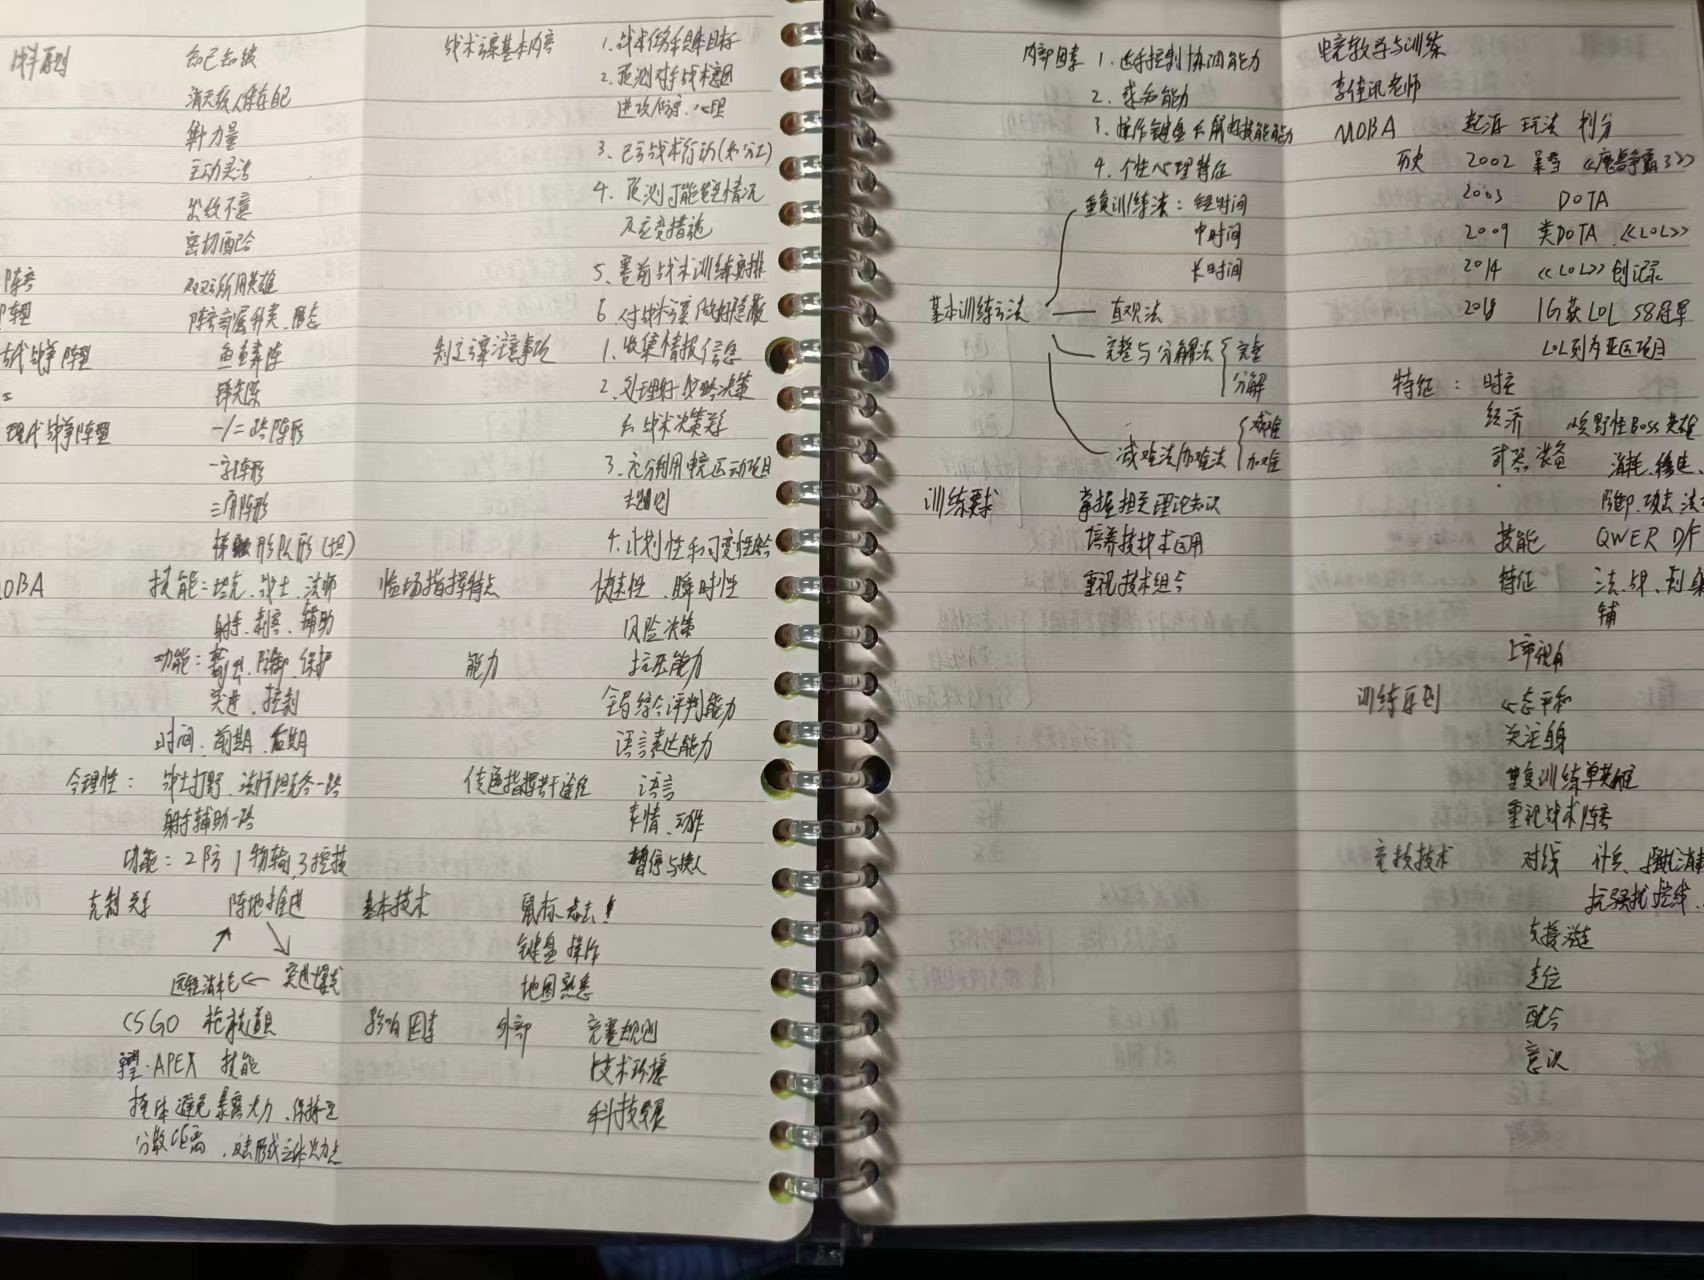 战术原则 知己知彼
消灭敌人保存自己
集中力量
主动灵活
出敌不意
密切配合
阵容 双方所用英雄
阵型 阵容 形态
古代战争阵型 鱼鳞阵
锋矢阵
现代战争阵型 一/二路阵形
一字阵形
三角阵形
梯形队形
MOBA 技能:坦克、战士、法师
射手、刺客、辅助
功能: 防御、保护
突进、控制
时间、前期、后期
合理性: 战士打野、法师坦克各一路
射手辅助一路
功能:2防 1物输,3控技
克制关系 阵地推进
远程消耗← 突进爆发
CSGO 枪械道具
APEX 技能
掩体避免暴露火力、保持一定
分散距离,
战术方案基本内容 1.战术任务和具体目标
2.预测对手战术意图
进攻、防守、心理
3.己方战术行动(和分工)
4.预测可能变情况
及应变措施
5.赛前战术训练安排
6.对战术方案做好隐蔽
制定方案注意事项 1.收集情报信息
2.处理好战略决策
与战术决策关系
3.充分利用电竞运动项目
规则
4.计划性和可变性结合
临场指挥特点 快速性、瞬时性
风险决策
能力 抗压能力
全局综合评判能力
语言表达能力
传递指挥若干途径 语言
表情、动作
暂停与换人
基本技术 鼠标点击!
键盘操作
地图熟悉
影响因素 外部 竞赛规则
技术环境
科技发展
内部因素 1.选手控制协调能力
2.感知能力
3.操作键盘与解析技能能力
4.个性心理特征
重复训练法:短时间
中时间
长时间
基本训练方法 直观法
完整与分解法{完整
分解
减难法加难法{减难
加难
训练要求 掌握相关理论知识
培养技战术运用
重视技术组合
电竞教学与训练
李佳讯老师
MOBA 起源 玩法 划分
历史 2002 暴雪 《魔兽争霸3》
2003 DOTA
2009 类DOTA 《LOL》
2014 《LOL》创记录
2018 IG获LOL S8冠军
LOL列为亚运项目
特征: 时空
经济 野怪Boss英雄
装备 消耗、
防御、攻击、法
技能 QWER D/F
特征 法、战、刺
辅
上帝视角
训练原则 心态平和
关注自身
重复训练单英雄
重视战术阵容
竞技技术 对线 补兵、骚扰消耗
抗骚扰控线、
支援游走
走位
配合
意识